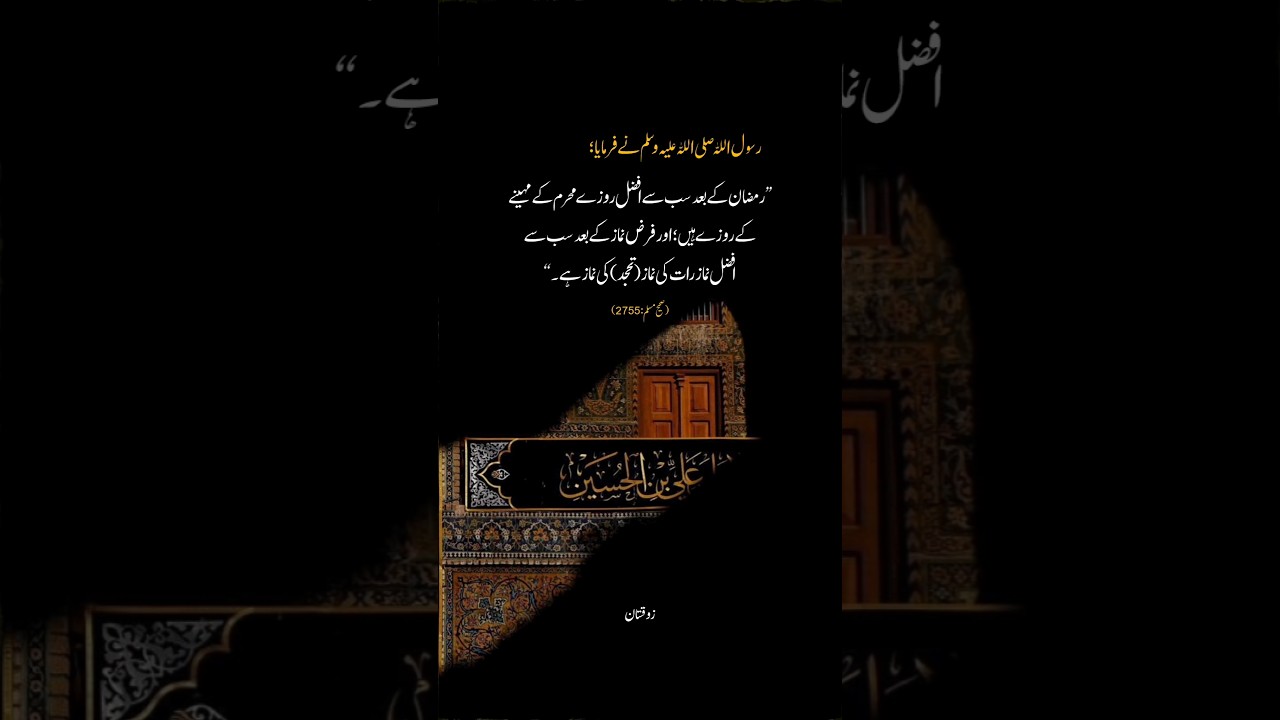 رسول اللہ صلی اللہ علیہ وسلم نے فرمایا؛
”رمضان کے بعد سب سے افضل روزے محرم کے مہینے
کے روزے ہیں؛ اور فرض نماز کے بعد سب سے
افضل نماز رات کی نماز (تہجد) کی نماز ہے۔“
(صحیح مسلم:2755)
عَلِيِّ بْنِ الْحُسَيْنِ
ذوقستان